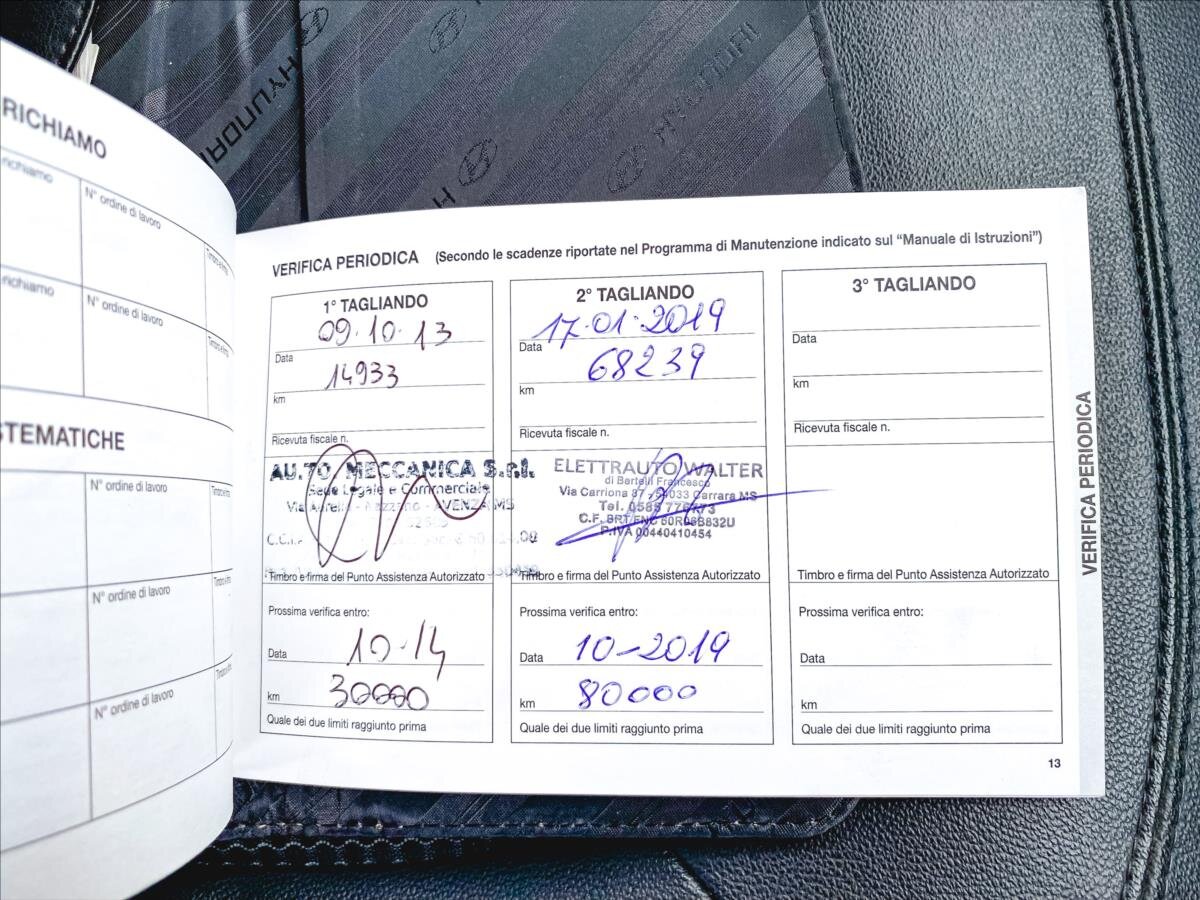 HYUNDAI
HYUNDAI
RICHIAMO
richiamo
N° ordine di lavoro
richiamo
N° ordine di lavoro
TEMATICHE
N° ordine di lavoro
N° ordine di lavoro
N° ordine di lavoro
VERIFICA PERIODICA (Secondo le scadenze riportate nel Programma di Manutenzione indicato sul “Manuale di Istruzioni”)
1° TAGLIANDO
09·10·13
Data
14933
km
Ricevuta fiscale n.
AU.TO. MECCANICA S.r.l.
Sede Legale e Commerciale
AVENZA MS
Timbro e firma del Punto Assistenza Autorizzato
Prossima verifica entro:
Data 10·14
km 30000
Quale dei due limiti raggiunto prima
2° TAGLIANDO
17·01·2019
Data
68239
km
Ricevuta fiscale n.
ELETTRAUTO WALTER
di Bertelli Francesco
Via Carriona 37 - 54033 Carrara MS
Tel. 0585
C.F. BRT FNC
P.IVA 00440410454
Timbro e firma del Punto Assistenza Autorizzato
Prossima verifica entro:
Data 10-2019
km 80000
Quale dei due limiti raggiunto prima
3° TAGLIANDO
Data
km
Ricevuta fiscale n.
Timbro e firma del Punto Assistenza Autorizzato
Prossima verifica entro:
Data
km
Quale dei due limiti raggiunto prima
VERIFICA PERIODICA
13